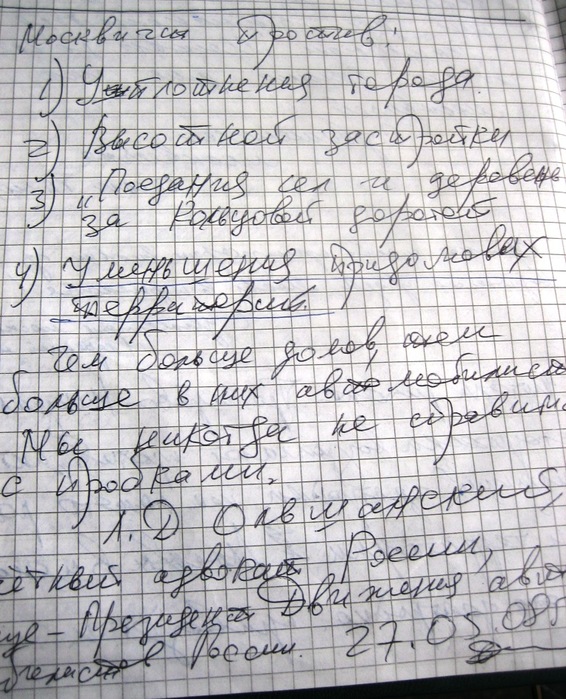 Москвичи против:
1) Уплотнения города.
2) Высотной застройки
3) „Поедания сел и деревень
за кольцовой дорогой
4) Уменьшения придомовых
территорий.
Чем больше домов, тем
больше в них автомобилист
Мы никогда не справимс
с пробками.
Л.Д Ольшанский,
ётный адвокат России,
це-президент Движения авт
билистов России. 27.05.08г